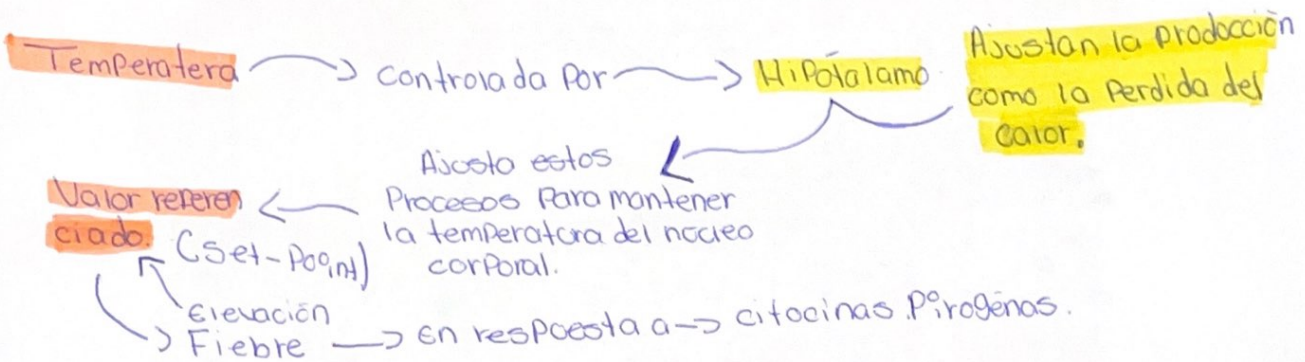 Temperatera → controlada por → Hipótalamo
Ajustan la producción
como la perdida del
calor.
Ajusta estos
Procesos para mantener
la temperatura del núcleo
corporal.
Valor referen
ciado.
(Set-Point)
Elevación
Fiebre → en respuesta a → citocinas Pirogénas.